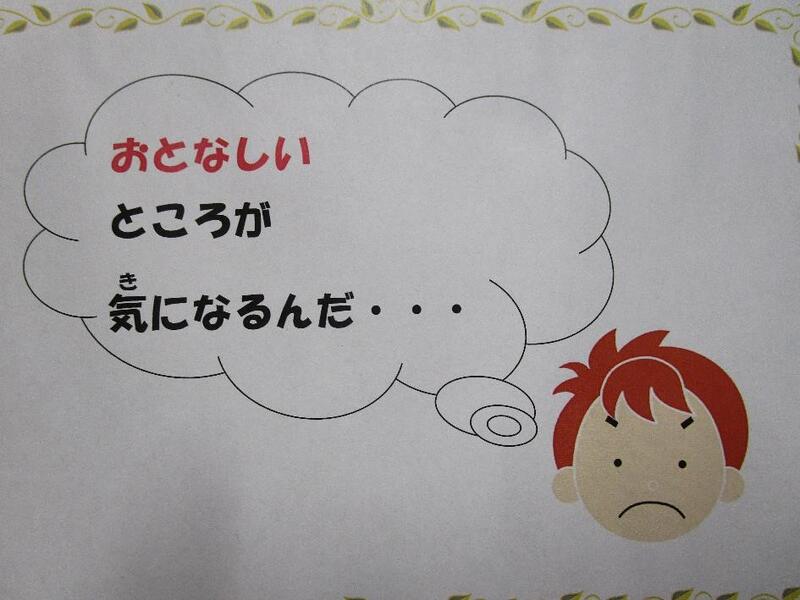 おとなしい
ところが
気になるんだ・・・